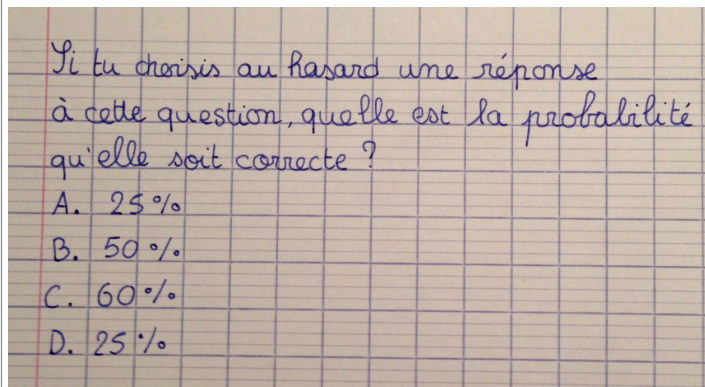 Si tu choisis au hasard une réponse
à cette question, quelle est la probabilité
qu'elle soit correcte ?
A. 25 %
B. 50 %
C. 60 %
D. 25 %